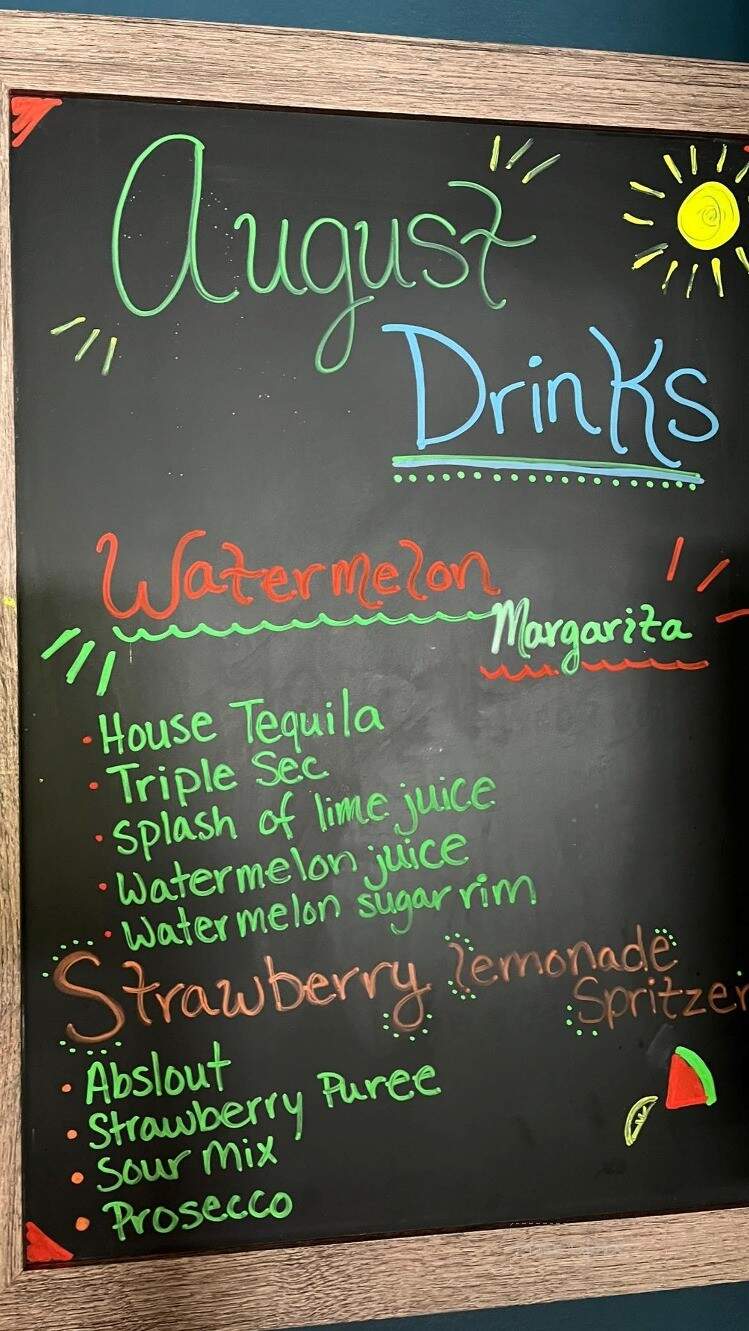 August
Drinks
Watermelon
Margarita
• House Tequila
• Triple Sec
• Splash of lime juice
• Watermelon juice
• Watermelon sugar rim
Strawberry lemonade
Spritzer
• Abslout
• Strawberry Puree
• Sour Mix
• Prosecco